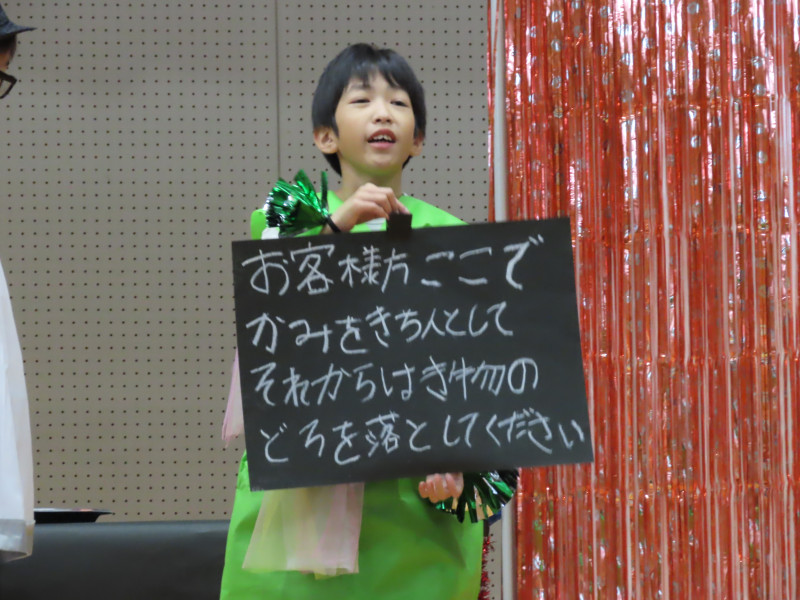 お客様方ここで
かみをきち人として
それからはき物の
どろを落としてください